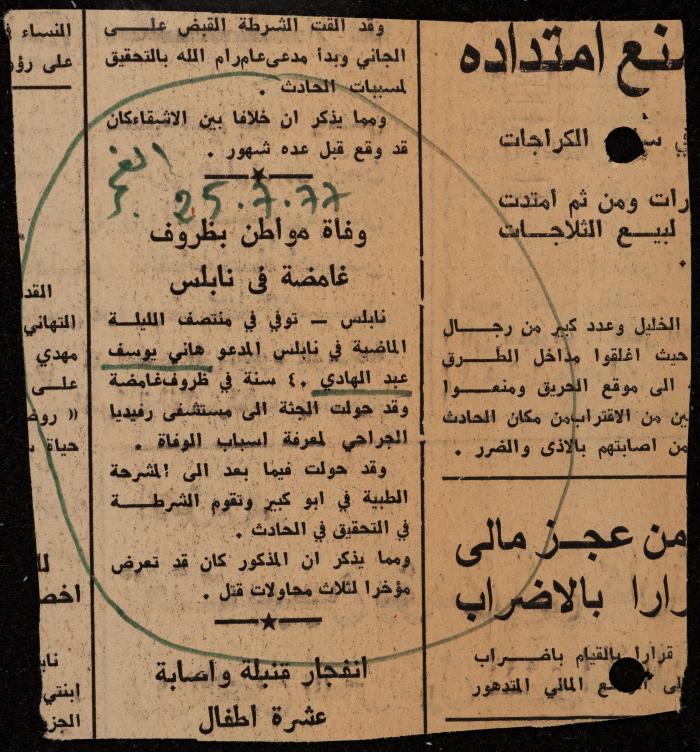 منع امتداده
الكراجات
رات ومن ثم امتدت
لبيع الثلاجات
الخليل وعدد كبير من رجال
حيث اغلقوا مداخل الطرق
الى موقع الحريق ومنعوا
من الاقتراب من مكان الحادث
من اصابتهم بالاذى والضرر .
من عجز مالى
قرارا بالاضراب
قرارا بالقيام باضراب
المالي المتدهور
وقد القت الشرطة القبض على
الجاني وبدأ مدعي عام رام الله بالتحقيق
لمسببات الحادث .
ومما يذكر ان خلافا بين الاشقاء كان
قد وقع قبل عده شهور .
25.7.77
وفاة مواطن بظروف
غامضة في نابلس
نابلس ــ توفي في منتصف الليلة
الماضية في نابلس المدعو هاني يوسف
عبد الهادي ٤٠ سنة في ظروف غامضة
وقد حولت الجثة الى مستشفى رفيديا
الجراحي لمعرفة اسباب الوفاة .
وقد حولت فيما بعد الى المشرحة
الطبية في ابو كبير وتقوم الشرطة
في التحقيق في الحادث .
ومما يذكر ان المذكور كان قد تعرض
مؤخرا لثلاث محاولات قتل .
انفجار قنبلة واصابة
عشرة اطفال
النساء
على
القد
التهاني
مهدي
على
حياة
ابنتي